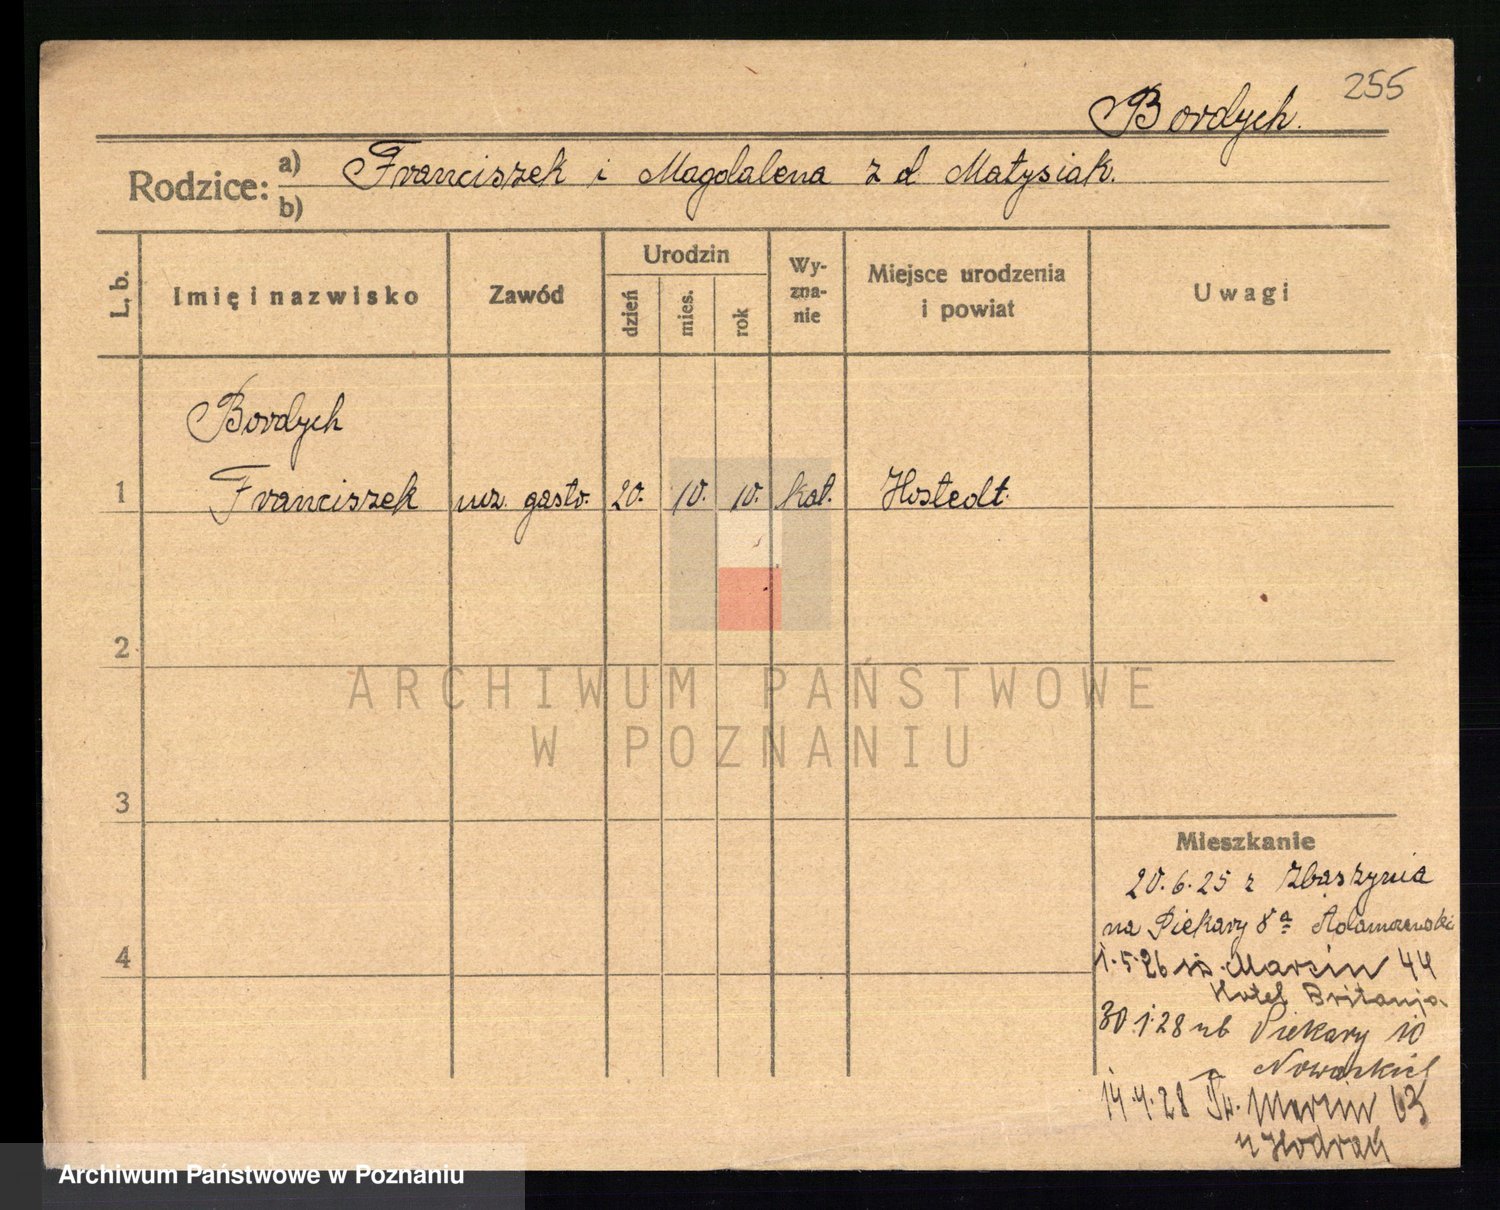 255
Bordych.
Rodzice: a) Franciszek i Magdalena z d Matysiak.
b)
L. b.
Imię i nazwisko
Zawód
Urodzin
dzień
mies.
rok
Wy-
zna-
nie
Miejsce urodzenia
i powiat
Uwagi
Bordych
1 Franciszek ucz. gastr. 20. 10. 10. kat. Hostedt.
2
ARCHIWUM PAŃSTWOWE
W POZNANIU
3
Mieszkanie
20.6.25 z Zbąszynia
na Piekary 8a Adamczewski
4
1.5.26 św. Marcin 44
Hotel Britanja
30.1.28 ub Piekary 10
14.4.28 Św. Marcin 63
u
Archiwum Państwowe w Poznaniu